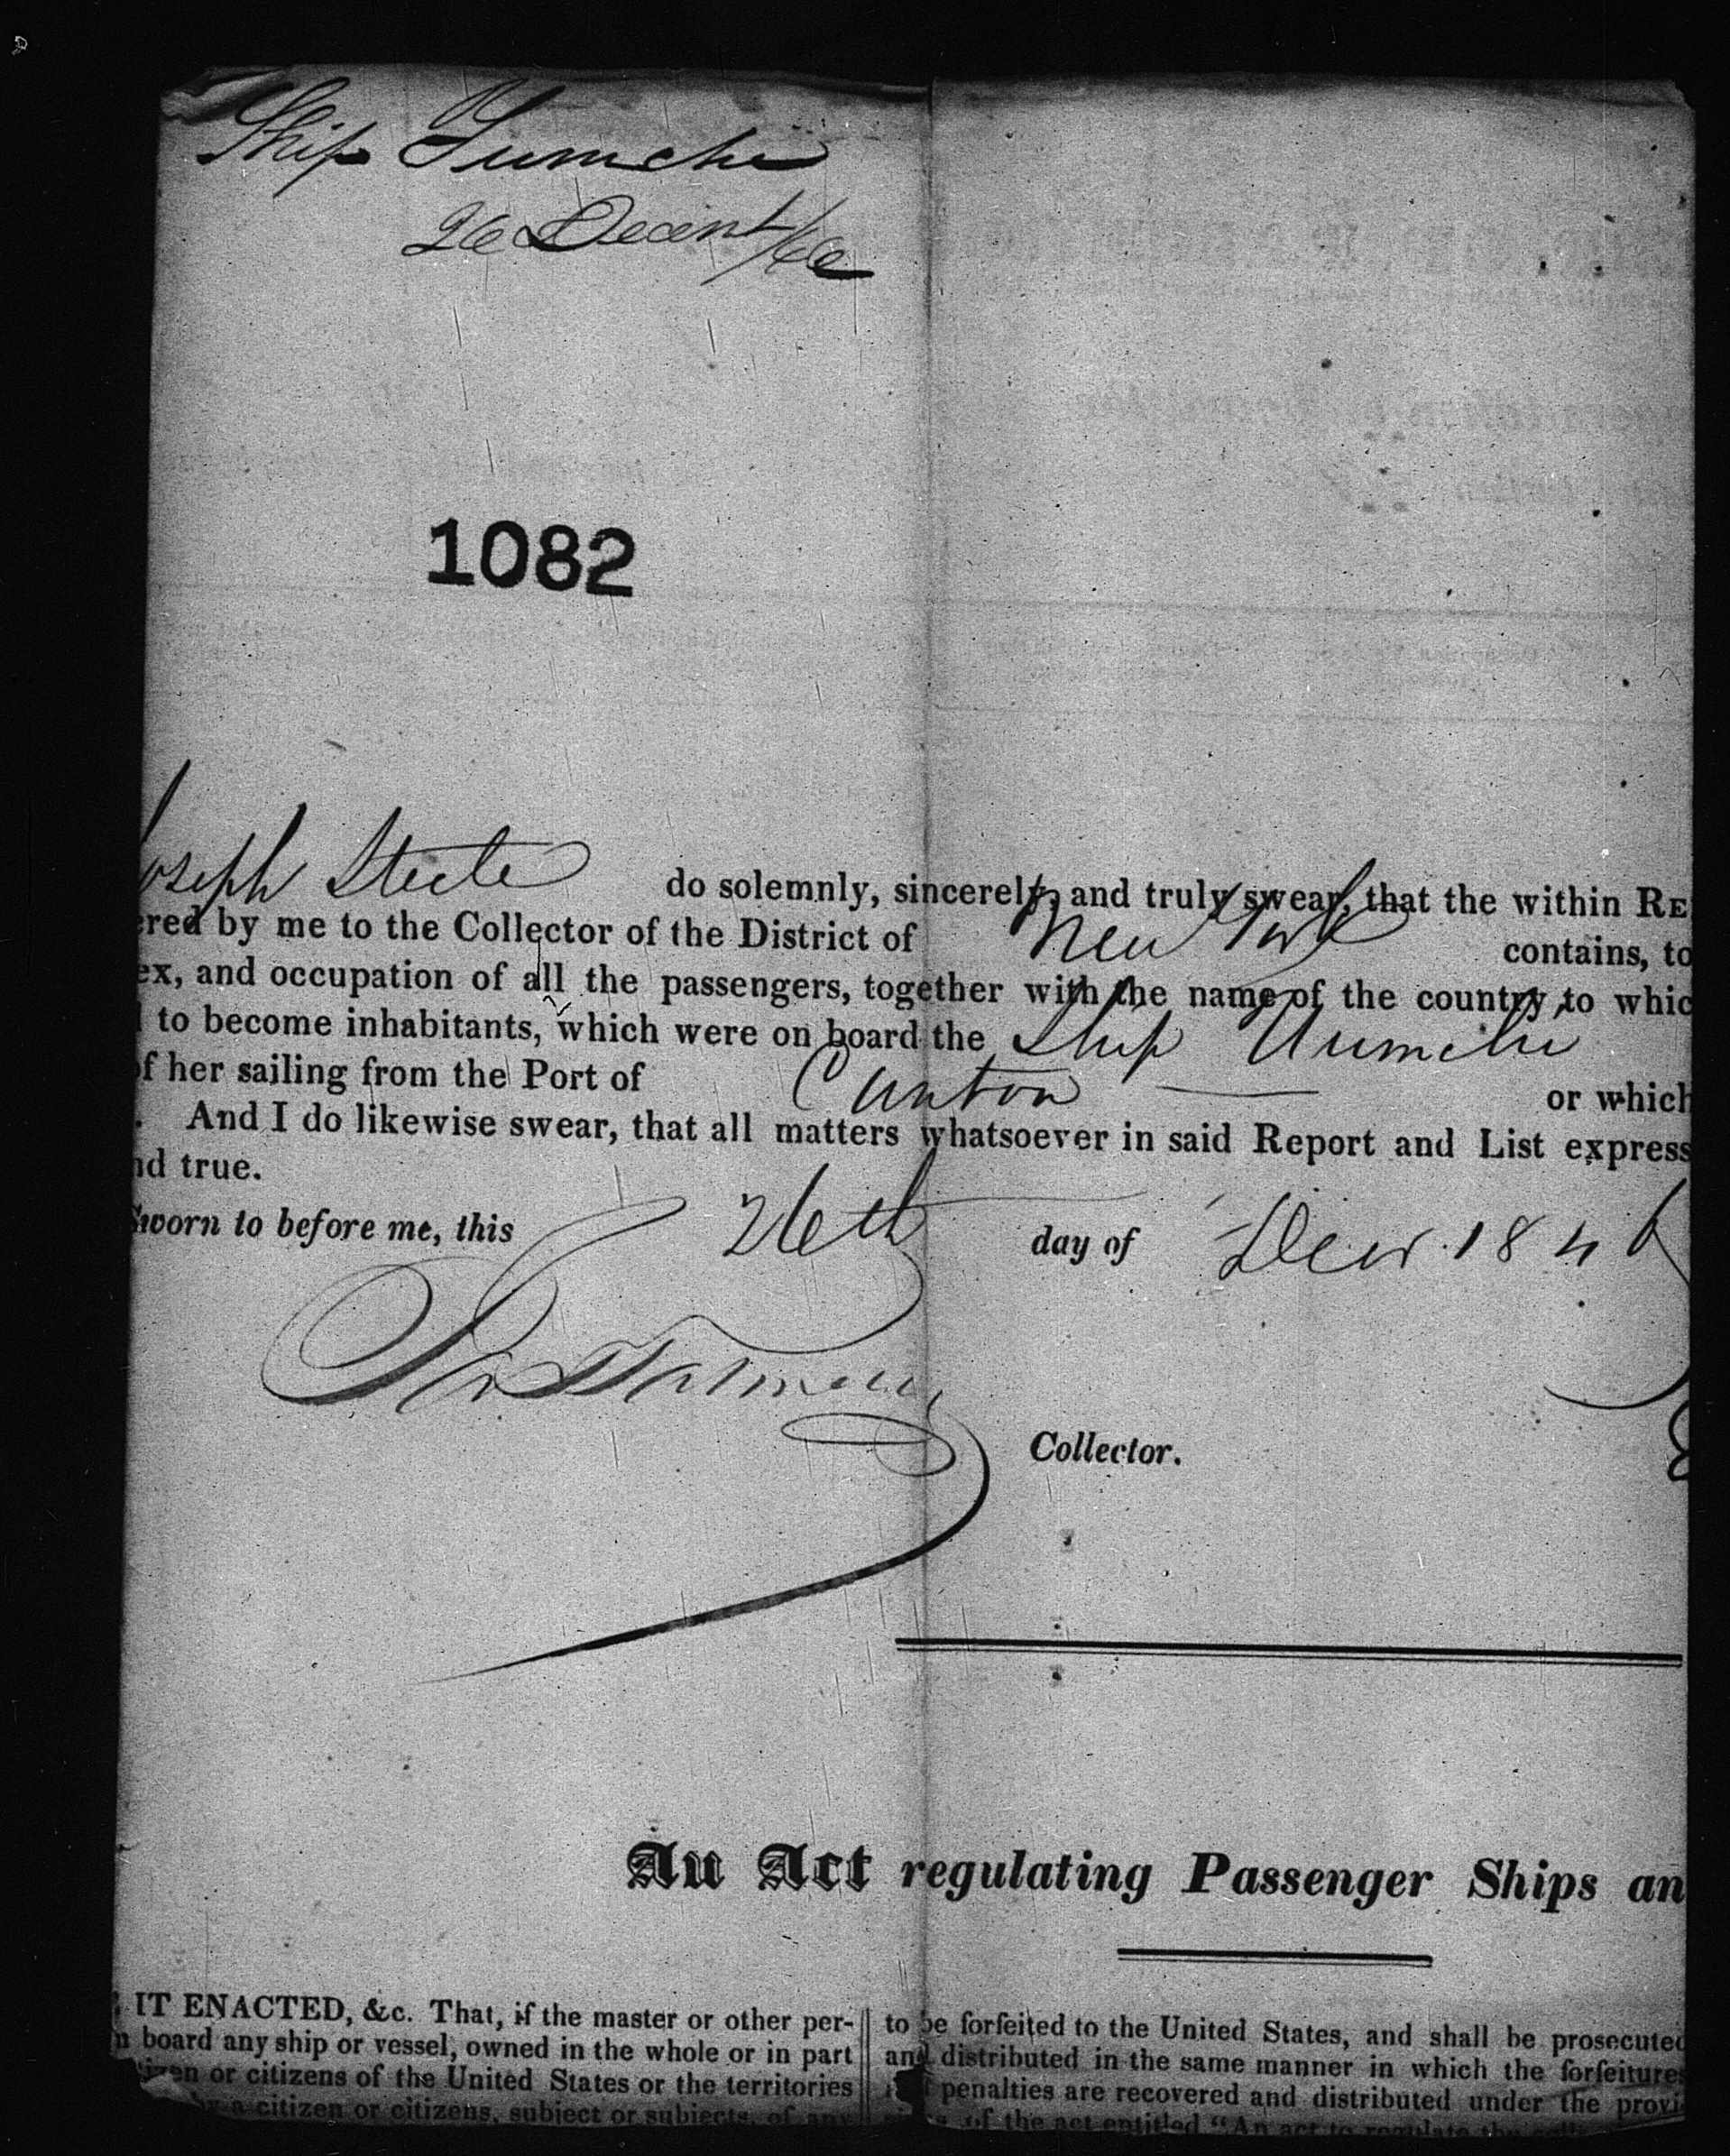 Ship Yumchi
26 Decemb/46
1082
Joseph Steele do solemnly, sincerely, and truly swear, that the within RE
ered by me to the Collector of the District of New York contains, to
ex, and occupation of all the passengers, together with the name of the country to whic
to become inhabitants, which were on board the Ship Yumchi
of her sailing from the Port of Canton or which
. And I do likewise swear, that all matters whatsoever in said Report and List express
nd true.
Sworn to before me, this 26th day of Decr. 1846
Collector.
An Act regulating Passenger Ships an
IT ENACTED, &c. That, if the master or other per-
n board any ship or vessel, owned in the whole or in part
izen or citizens of the United States or the territories
by a citizen or citizens, subject or subjects, of any
to be forfeited to the United States, and shall be prosecuted
and distributed in the same manner in which the forfeitures
penalties are recovered and distributed under the provi
of the act entitled "An act to regulate the